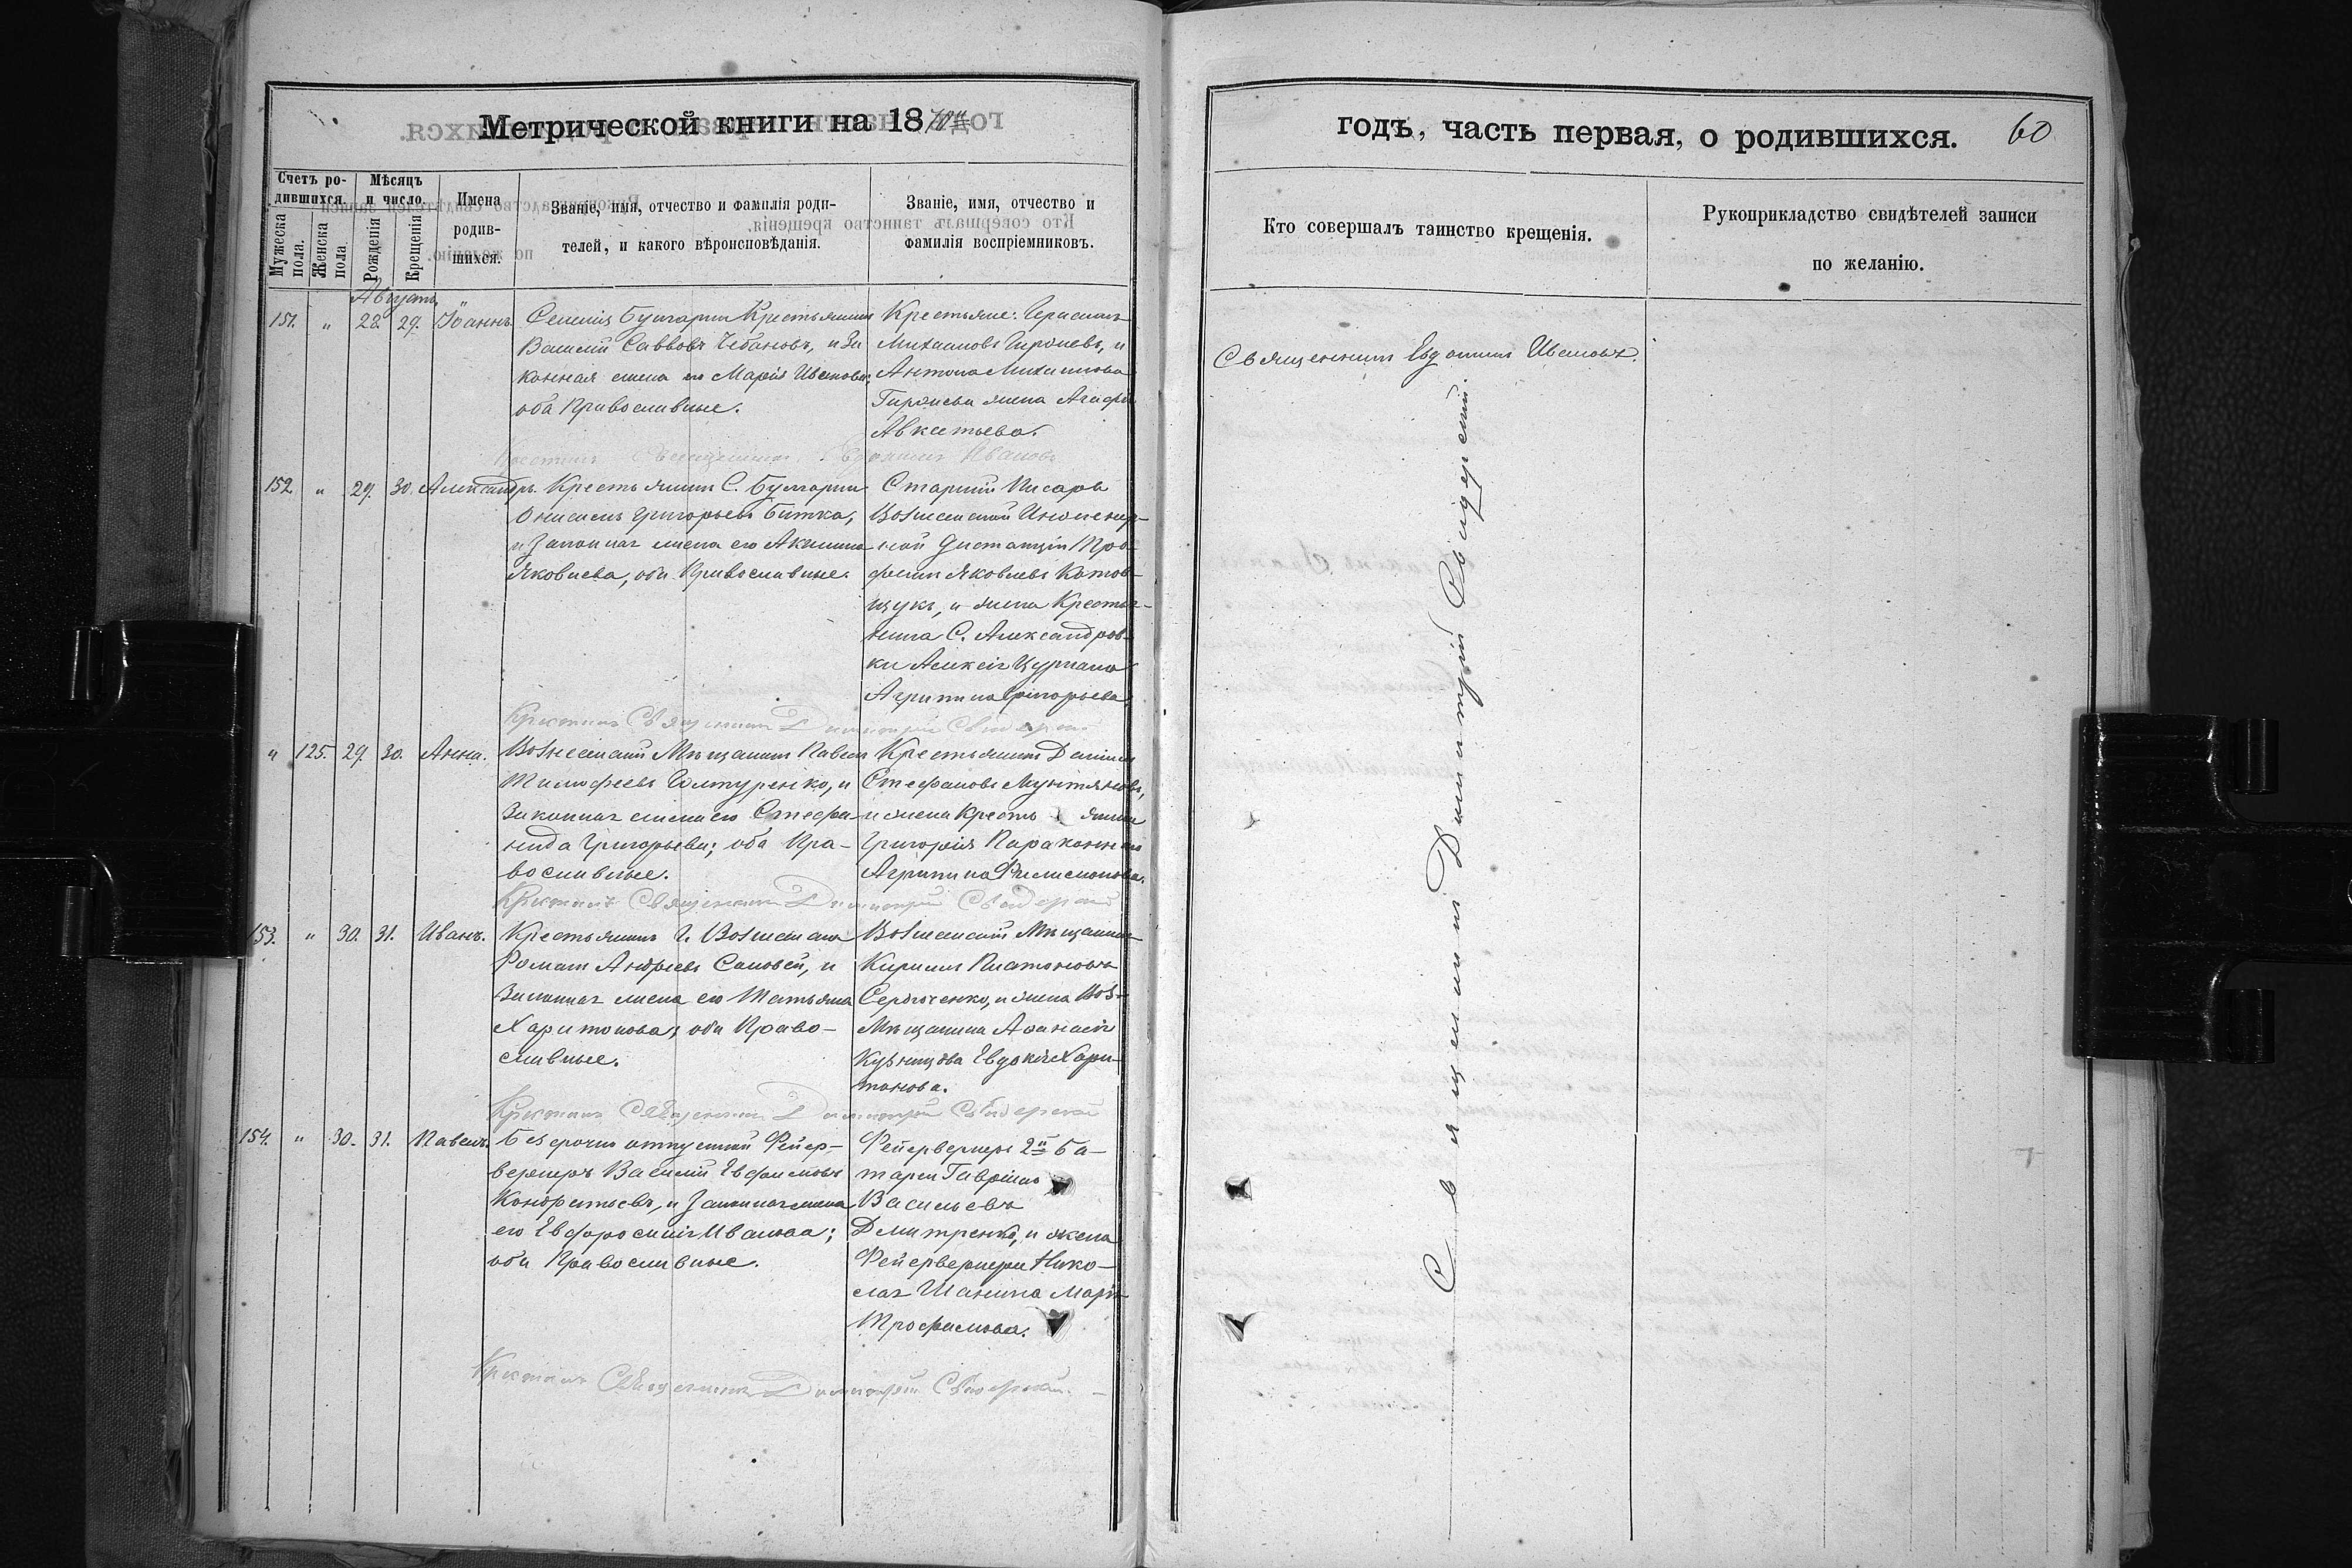 Метрической книги на 18
годъ, часть первая, о родившихся. 60
Счетъ ро-
дившихся.
Мужеска
пола.
Женска
пола
Мѣсяцъ
и число.
Рожденія
Крещенія
Имена
родив-
шихся.
Званіе, имя, отчество и фамилія роди-
телей, и какого вѣроисповѣданія.
Званіе, имя, отчество и
фамилія воспріемниковъ.
Кто совершалъ таинство крещенія.
Рукоприкладство свидѣтелей записи
по желанію.
Августъ
151. " 28. 29. Іоаннъ.
Селенія Булгарки Крестьянинъ
Василій Саввовъ Чебановъ, и За
конная жена его Марія Иванова
оба Православные.
Крестьяне: Герасимъ
Михаиловъ, и
Антона Михаилова
жена Агафія
Авксентьева.
Священникъ Евдокимъ Ивановъ.
Крестилъ Священникъ Евдокимъ Ивановъ
152 " 29. 30. Александръ.
Крестьянинъ С. Булгарки
Онисимъ Григорьевъ Битка,
и Законная жена его Акилина
Яковлева, оба Православные.
Старшій Писарь
Вознесенской Инженер-
ной Дистанціи Про-
Яковлевъ Котов-
щукъ, и жена Крестья-
нина С. Александров-
ки Алексія Цуркана
Агрипина Григорьева
Крестилъ Священникъ Димитрій Свидерскій
" 125. 29. 30. Анна.
Вознесенскій Мѣщанинъ Павелъ
Тимофеевъ, и
Законная жена его Стефа-
нида Григорьева; оба Пра-
вославные.
Крестьянинъ Даніилъ
Стефановъ Мунтяновъ,
и жена Крестьянина
Григорія
Агрипина Филимонова.
Крестилъ Священникъ Димитрій Свидерскій
153. " 30. 31. Иванъ.
Крестьянинъ Г. Вознесенска
Романъ Андреевъ Соловей, и
Законная жена его Татьяна
Харитонова; оба Право-
славные.
Вознесенскій Мѣщанинъ
Кириллъ Платоновъ
Сердюченко, и жена Воз.
Мѣщанина Афанасія
Кузнецова Евдокія Хари-
тонова.
Крестилъ Священникъ Димитрій Свидерскій
154. " 30. 31. Павелъ.
Безсрочно отпускной Фейер-
веркеръ Василій Евфимовъ
Кондратьевъ, и Законная жена
его Евфросинія Иванова;
оба Православные.
Фейерверкеръ 2й Ба-
тареи Гавріилъ
Васильевъ
Дмитренко, и жена
Фейерверкера Нико-
лая Шанина Марія
Трофимова.
Крестилъ Священникъ Димитрій Свидерскій.
Священникъ Димитрій Свидерскій.